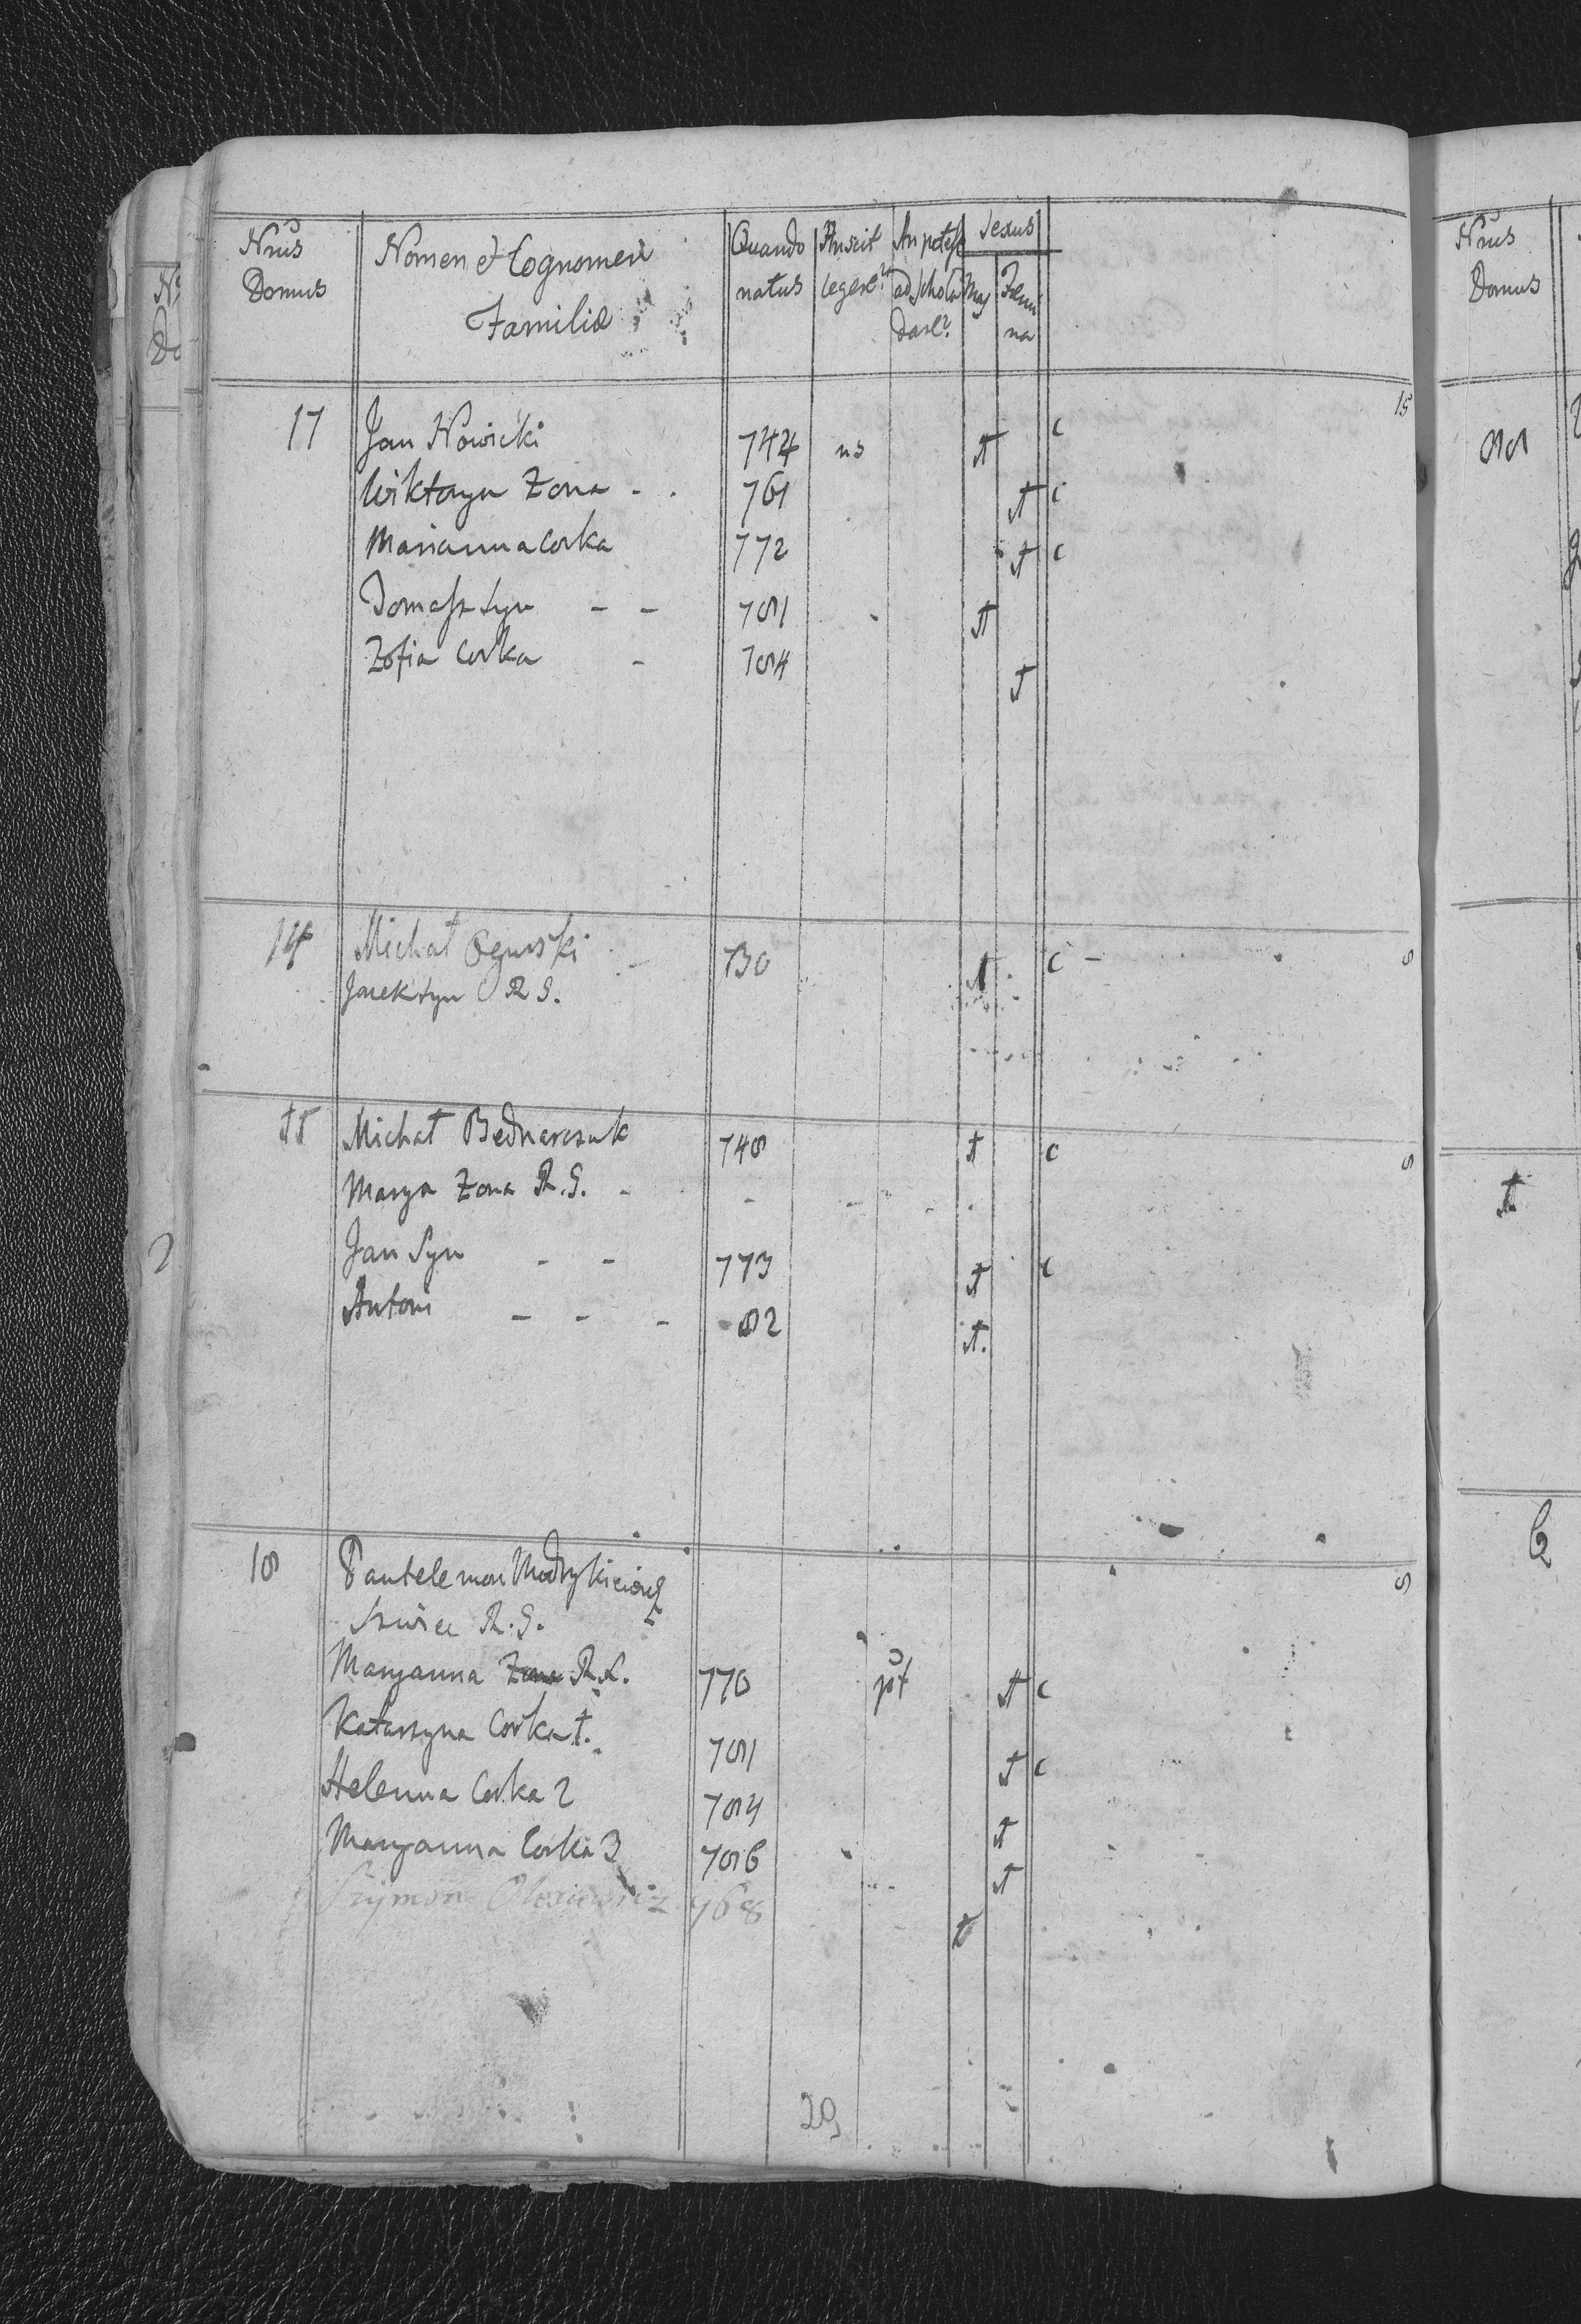 Nrūs Domus | Nomen et Cognomen Familiæ | Quando natus | An scit legere? | An potest ad Schola dare? | Sexus | Mas | Femina
15
17 Jan Nowicki 744 ns † c
Wiktorya Zona - - 761 † c
Marianna Corka 772 † c
Tomasz Syn - - 781 †
Zofia Corka - 784 †
14 Michał - 730 † c - 8
Jacek Syn R G.
Michał Bednarczuk 748 † c 8
Marya Zona R. G. - - - -
Jan Syn - - 773 † c
Antoni - - - 82 †.
18 Pantelemon 8
Szwiec R. G.
Maryanna Zona R. Ł. 770 pt † c
Katarzyna Corka 1. 781 † c
Helenna Corka 2 784 †
Maryanna Corka 3 786 †
Szymon 768 †
20
Nrūs Domus
88